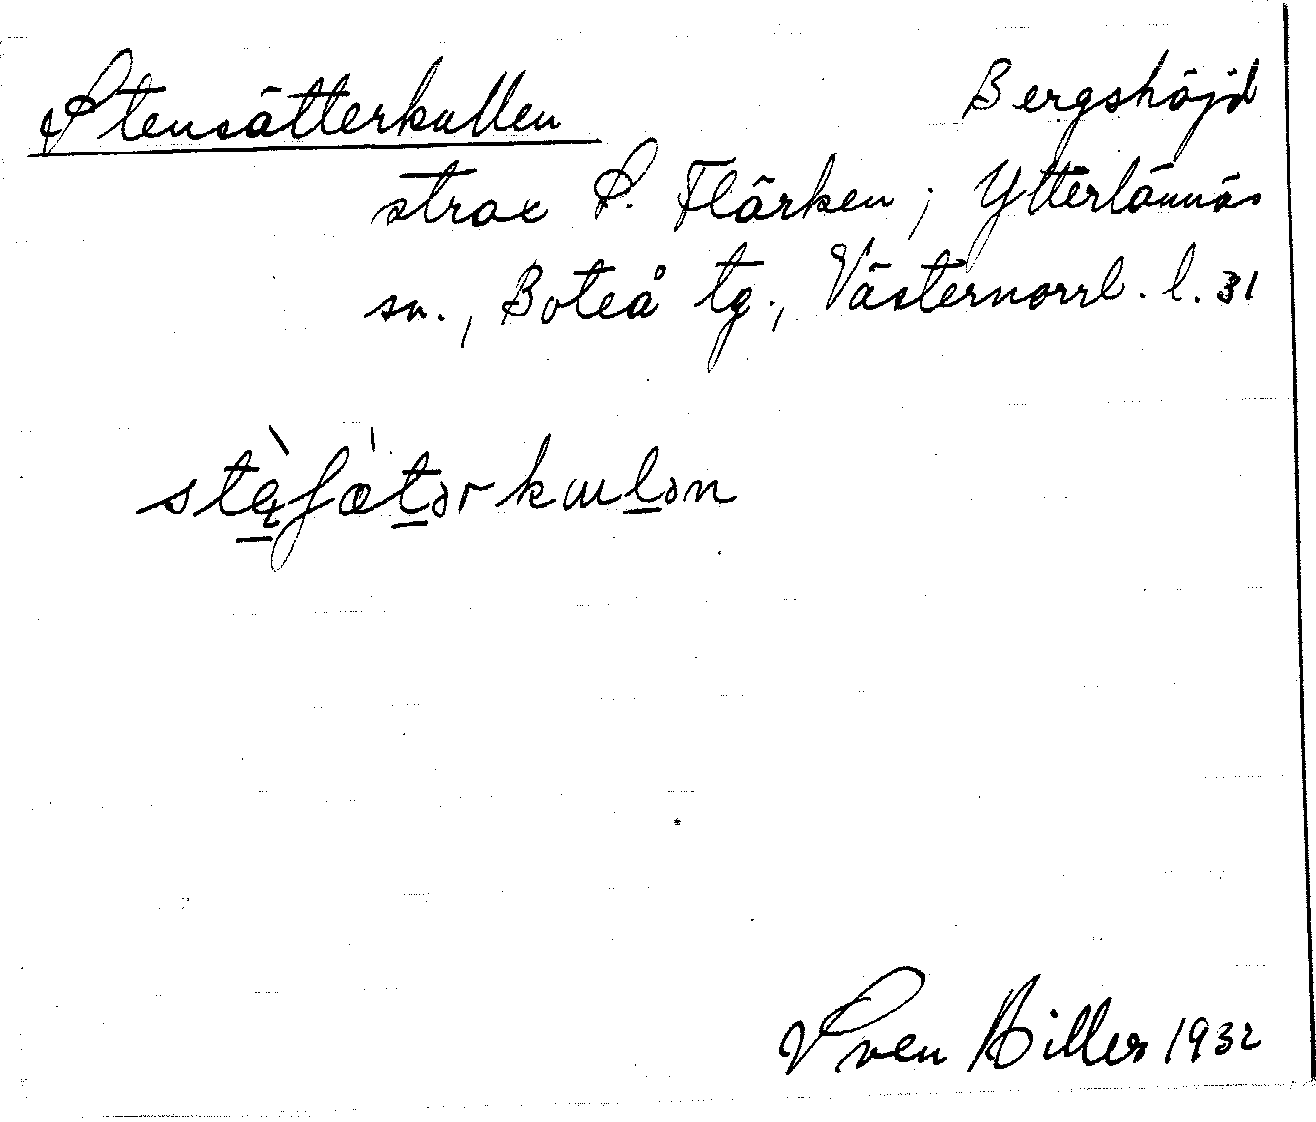 Stensätterkullen Bergshöjd
strax S. Flärken, Ytterlännäs
sn., Boteå tg., Västernorrl. l. 31
Sven Hiller 1932